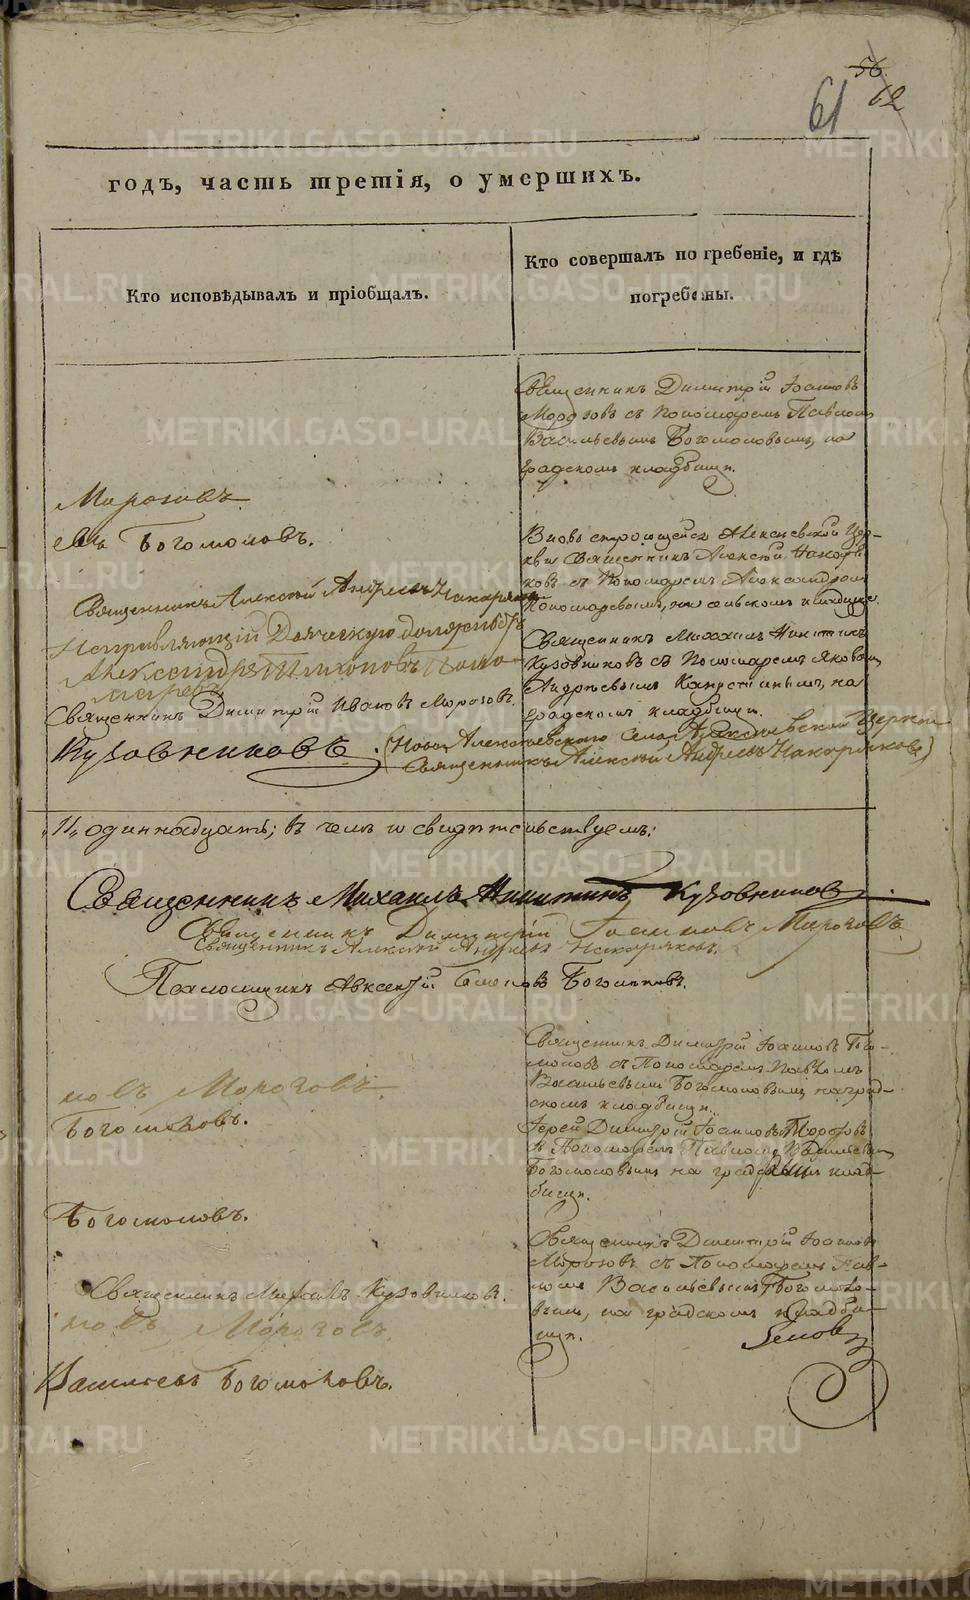 56
62
61
годъ, часть третія, о умершихъ.
Кто исповѣдывалъ и пріобщалъ.
Кто совершалъ погребеніе, и гдѣ
погребены.
Священникъ Димитрій Іоанновъ
Морозовъ съ Пономаремъ Павломъ
Васильевымъ Богомоловымъ, на
градскомъ кладбищи.
Морозовъ
Богомоловъ.
Вновь строющейся Алексѣевской Цер-
кви Священникъ Алексій Накоря-
ковъ съ Пономаремъ Александромъ
Пономаревымъ, на сельскомъ кладбище.
Священникъ Алексѣй Андреевъ Накоряковъ
Исправляющій Дьяческую должность
Александръ Тихоновъ Поно-
маревъ
Священникъ Михаилъ Никитинъ
Кузовниковъ съ Пономаремъ Яковомъ
Андреевымъ Капустинымъ, на
градскомъ кладбищи.
Священникъ Димитрій Ивановъ Морозовъ.
Кузовниковъ.
(Ново Алексѣевскаго Села Алексѣевской Церкви
Священникъ Алексѣй Андреевъ Накоряковъ)
"11" одиннадцать; въ чемъ и свидѣтельствуемъ:
Священникъ Михаилъ Никитинъ Кузовниковъ.
Священникъ Димитрій Іоанновъ Морозовъ.
Священникъ Алексѣй Андреевъ Накоряковъ.
Псаломщикъ Авксентій
Священникъ Димитрій Іоанновъ
съ Пономаремъ Павломъ
Васильевымъ Богомоловымъ на град-
скомъ кладбищи.
новъ Морозовъ
Богомоловъ.
Іерей Димитрій Іоанновъ Морозовъ
съ Пономаремъ Павломъ Васильевымъ
Богомоловымъ на градскомъ клад-
бищи.
Богомоловъ.
Священникъ Димитрій Іоанновъ
Морозовъ съ Пономаремъ Пав-
ломъ Васильевымъ Богомоло-
вымъ, на градскомъ кладби-
щи.
Священникъ Михаилъ Кузовниковъ.
новъ Морозовъ.
Васильевъ Богомоловъ.
METRIKI.GASO-URAL.RU